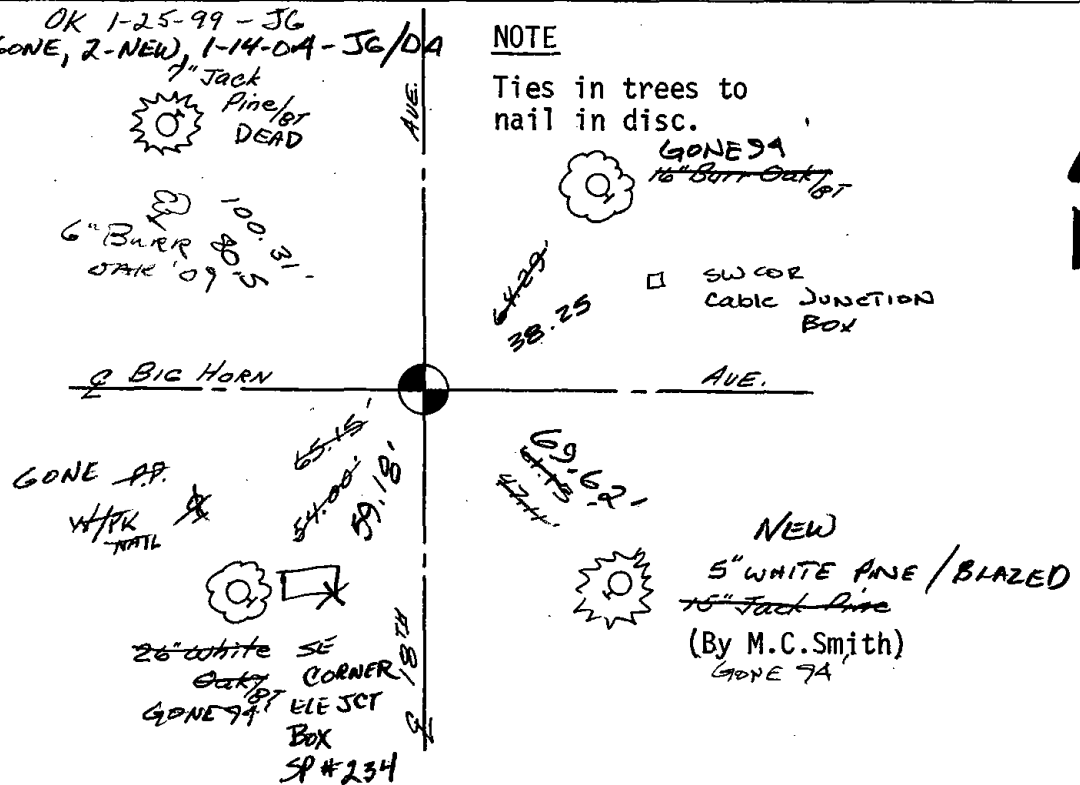 OK 1-25-99 - JG
GONE, 2-NEW, 1-14-04 - JG/DA
7" Jack
Pine/BT
DEAD
AVE.
NOTE
Ties in trees to
nail in disc.
GONE 94
16" Burr Oak/BT
6" BURR
OAK '09
100.31'
80.5
64.29'
38.25
SW COR
Cable JUNCTION
BOX
℄ BIG HORN
AVE.
65.15'
54.00'
59.18'
69.62'
61.13
47.11
GONE P.P.
W/PK
NAIL
NEW
5" WHITE PINE / BLAZED
15" Jack Pine
(By M.C.Smith)
GONE 94'
26" White
Oak/BT
GONE 94'
SE
CORNER
ELE JCT
BOX
SP #234
℄ 18TH